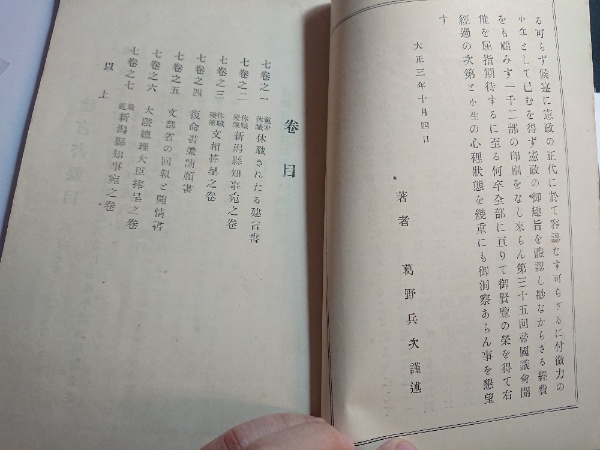 る可らず候遂に憲政の正代に於て容認むす可らさるに付微力の
小生として已むを得ず憲政の御趣旨を遵認し尠なからさる経費
をも顧みす一千二部の印刷をなし来らん第三十五回帝國議會開
催を屈指期待するに至る何卒全部に亘りて御賢覽の榮を得て右
經過の次第と小生の心理狀態を幾重にも御洞察あらん事を懇望
す
大正三年十月四日
著者 葛野兵次謹述
卷目
七卷之一 休職されたる建言書
七卷之二 休職 新潟縣知事宛之卷
七卷之三 休職 文相捧呈之卷
七卷之四 復命書裁請願書
七卷之五 文部省の回報と陳情書
七卷之六 大隈總理大臣捧呈之卷
七卷之七 新潟縣知事宛之卷
以上